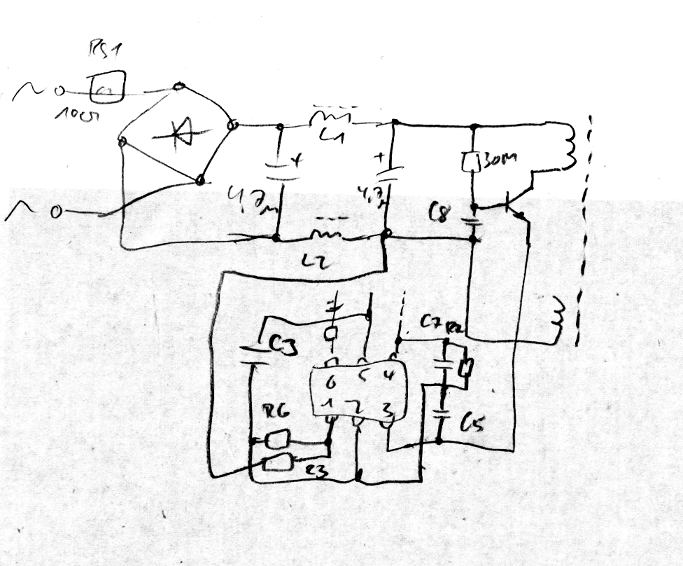 RS1
10Ω
L1
30M
4,7µ
4,7µ
C8
L2
C7 R2
C3
6 5 4
1 2 3
R6
C5
R3